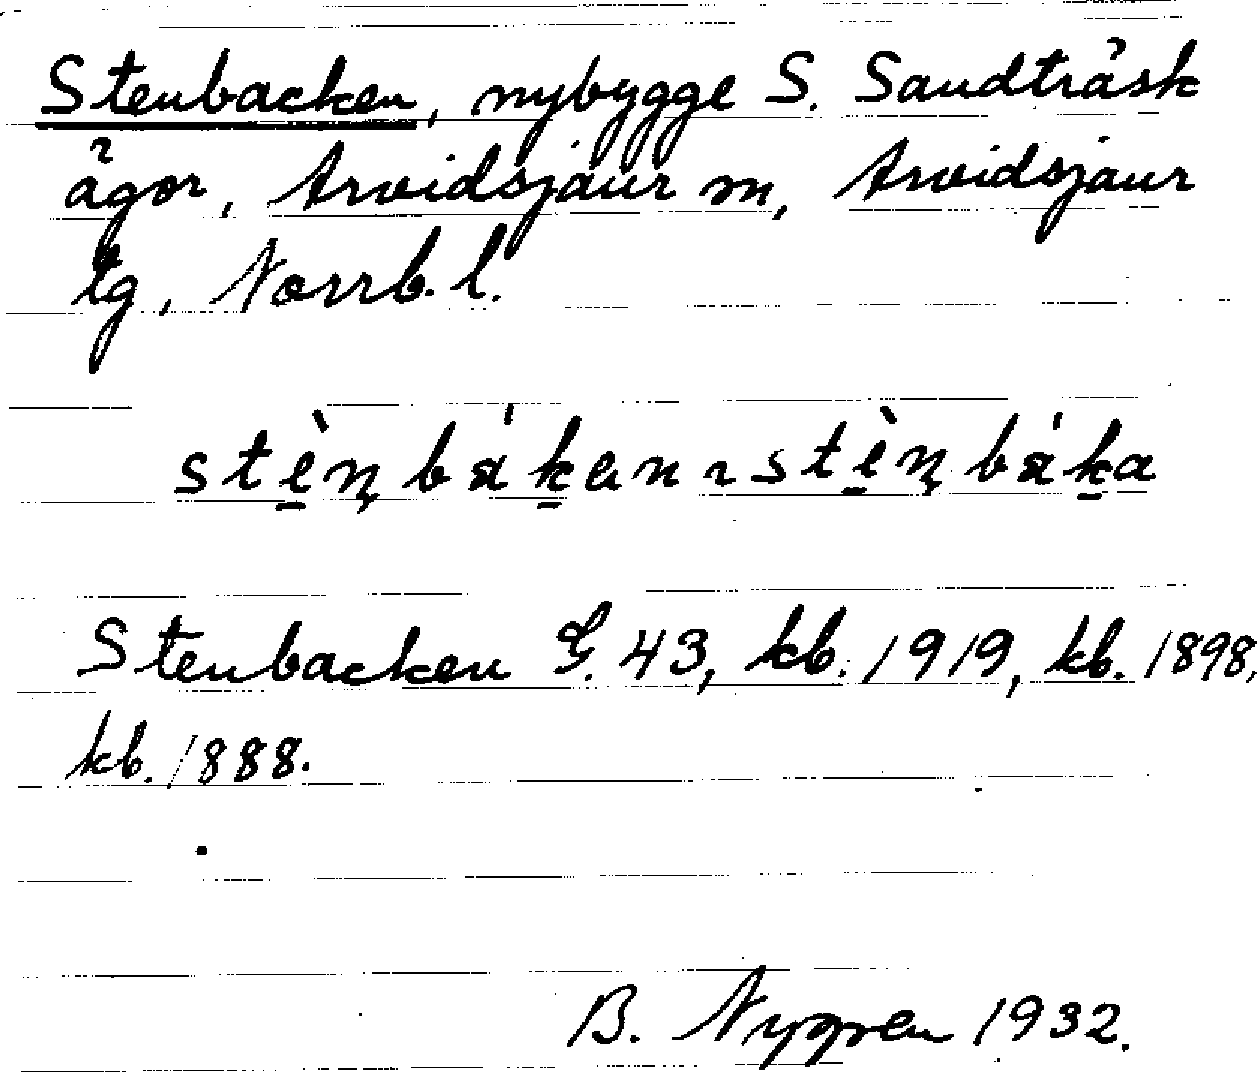 Stenbacken, nybygge S. Sandträsk
ägor, Arvidsjaur sn, Arvidsjaur
tg, Norrb. l.
stè̱n̨bá'ḵen ~ stè̱n̨bá'ḵa
Stenbacken G. 43, kb. 1919, kb. 1898,
kb. 1888.
B. Nygren 1932.